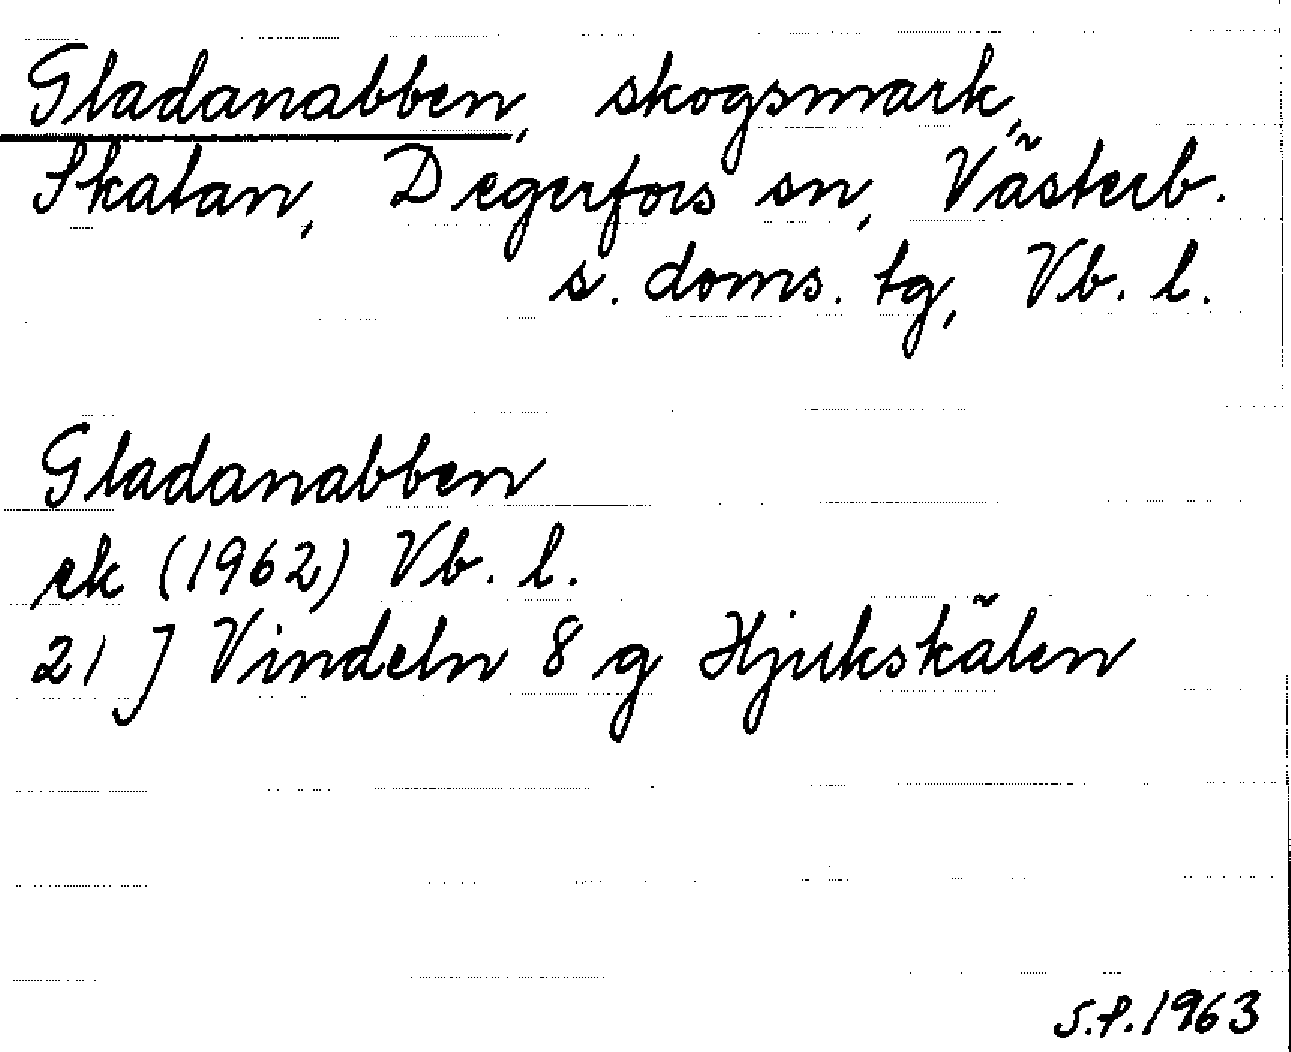 Gladanabben, skogsmark,
Skatan, Degerfors sn, Västerb.
s. doms. tg, Vb. l.
Gladanabben
ek (1962) Vb. l.
21 J Vindeln 8 g Hjukskälen
S.P. 1963